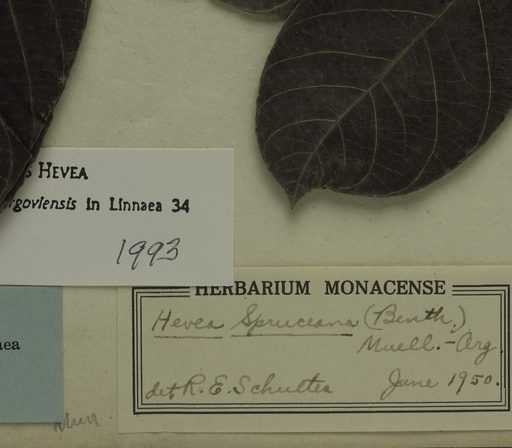 HEVEA
goviensis in Linnaea 34
1993
HERBARIUM MONACENSE
Hevea Spruceana (Benth.)
Muell.-Arg.
det R. E. Schultes
June 1950.
aea